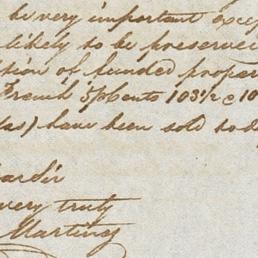 be very important excep
likely to be preserve
tion of funded proper
French 5 p Cents 103½ @ 10
das) have been sold tod
very truly
Martinez